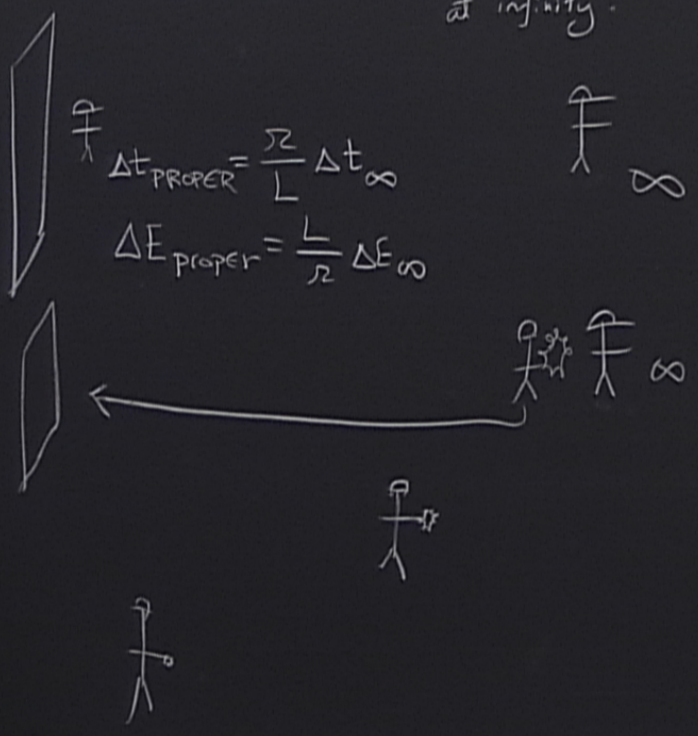 at infinity.
Δt_PROPER = r/L Δt_∞
∞
ΔE_proper = L/r ΔE_∞
∞